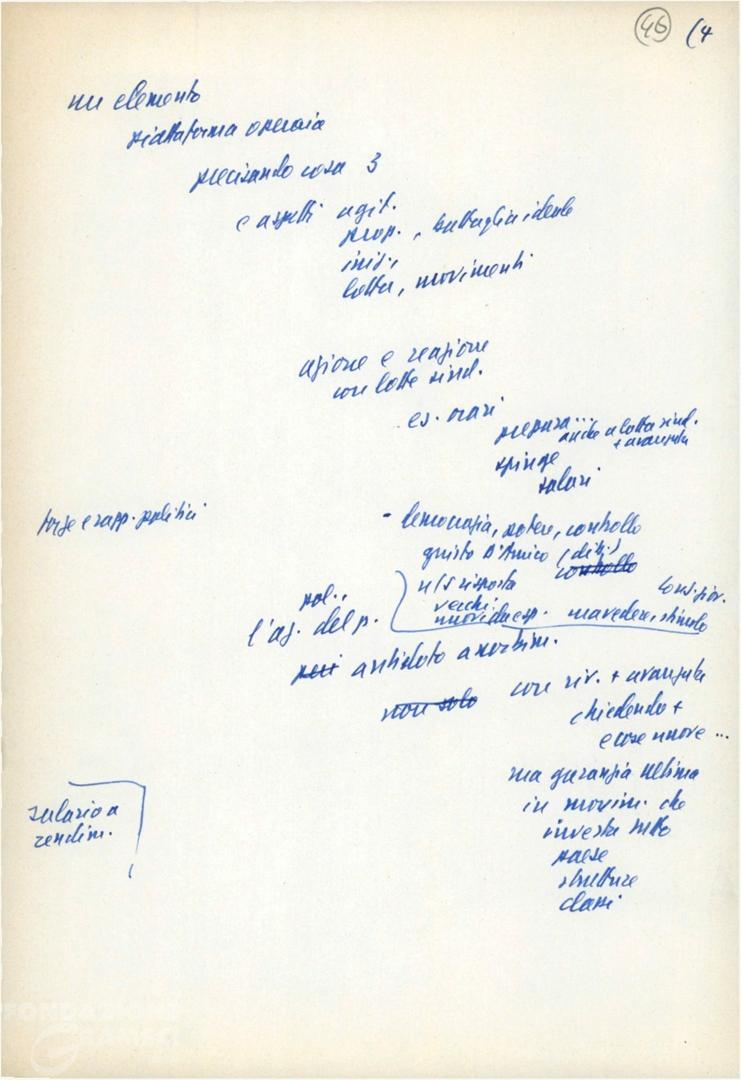 46 (4
un elemento
piattaforma operaia
precisando cosa 3
e aspetti agit.
prop., battaglia ideale
iniz.,
lotta, movimenti
azione e reazione
con lotte sind.
es. orari
prepara... anche a lotta sind.
+ avanzata
spinge
salari
forze e rapp. politici
- democrazia, potere, controllo
giusto D'Amico (dib.)
controllo
n/s risposta
vecchi
nuovi da esp. ma vedere, stimolo
pol.,
l'az. del p.
antidoto a morbim.
non solo con riv. + avanzata
chiedendo +
e cose nuove...
ma garanzia ultima
in movim. che
investa tutto
paese
strutture
classi
salario a
rendim.
FONDAZIONE
GRAMSCI